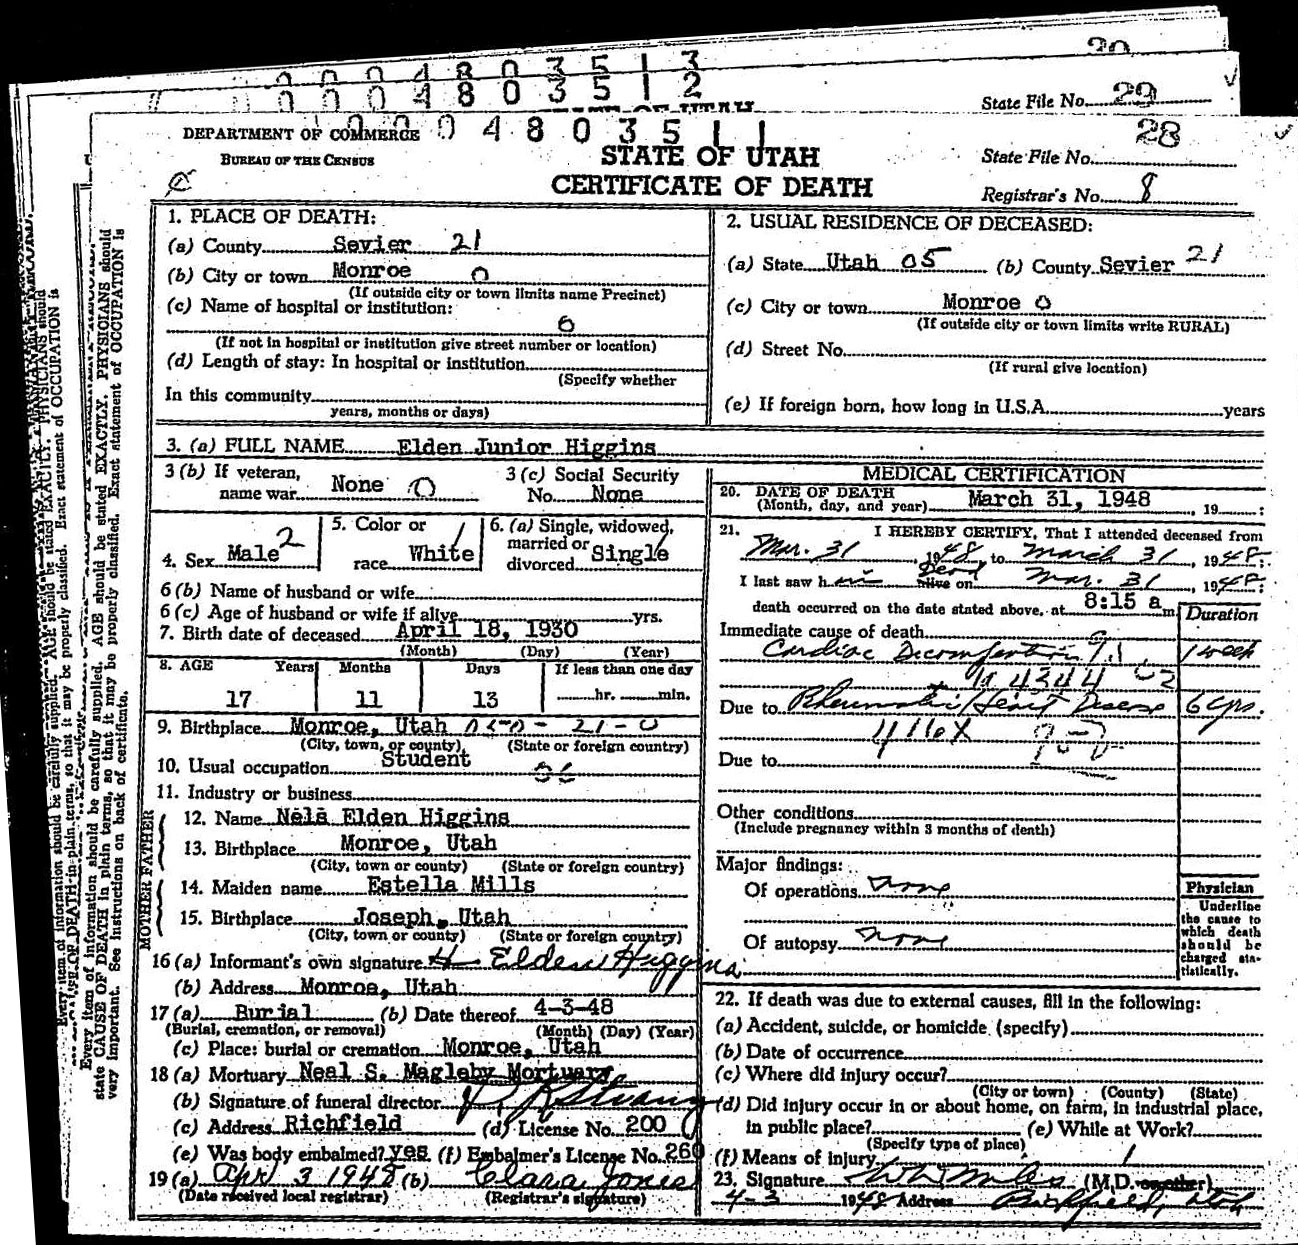 0 0 0 4 8 0 3 5 1 3
0 0 0 4 8 0 3 5 1 2
State File No. 29
0 0 0 4 8 0 3 5 1 1
28
DEPARTMENT OF COMMERCE
BUREAU OF THE CENSUS
STATE OF UTAH
CERTIFICATE OF DEATH
State File No.
Registrar's No. 8
1. PLACE OF DEATH:
(a) County Sevier 21
(b) City or town Monroe 0
(If outside city or town limits name Precinct)
(c) Name of hospital or institution:
0
(If not in hospital or institution give street number or location)
(d) Length of stay: In hospital or institution
(Specify whether
In this community
years, months or days)
2. USUAL RESIDENCE OF DECEASED:
(a) State Utah 05 (b) County Sevier 21
(c) City or town Monroe 0
(If outside city or town limits write RURAL)
(d) Street No.
(If rural give location)
(e) If foreign born, how long in U.S.A. years
3. (a) FULL NAME Elden Junior Higgins
3 (b) If veteran,
name war None 0
3 (c) Social Security
No. None
4. Sex Male 2
5. Color or
race White 1
6. (a) Single, widowed,
married or
divorced Single 1
6 (b) Name of husband or wife
6 (c) Age of husband or wife if alive yrs.
7. Birth date of deceased April 18, 1930
(Month) (Day) (Year)
8. AGE Years Months Days If less than one day
17 11 13 hr. min.
9. Birthplace Monroe, Utah
(City, town, or county) (State or foreign country)
10. Usual occupation Student
11. Industry or business
FATHER
12. Name Nels Elden Higgins
13. Birthplace Monroe, Utah
(City, town or county) (State or foreign country)
MOTHER
14. Maiden name Estella Mills
15. Birthplace Joseph, Utah
(City, town or county) (State or foreign country)
16 (a) Informant's own signature Elden Higgins
(b) Address Monroe, Utah
17 (a) Burial (b) Date thereof 4-3-48
(Burial, cremation, or removal) (Month) (Day) (Year)
(c) Place: burial or cremation Monroe, Utah
18 (a) Mortuary Neal S. Magleby Mortuary
(b) Signature of funeral director
(c) Address Richfield (d) License No. 200
(e) Was body embalmed? yes (f) Embalmer's License No. 260
19 (a) Apr 3 1948 (b) Clara Jones
(Date received local registrar) (Registrar's signature)
MEDICAL CERTIFICATION
20. DATE OF DEATH
(Month, day, and year) March 31, 1948, 19 :
21. I HEREBY CERTIFY, That I attended deceased from
Mar. 31, 1948 to March 31, 1948;
Dead
I last saw him alive on Mar. 31, 1948;
death occurred on the date stated above, at 8:15 a m
Duration
Immediate cause of death
Cardiac Decompensation 1 week
4344
Due to Rheumatic Heart Disease 6 yrs.
416X
Due to
Other conditions
(Include pregnancy within 3 months of death)
Major findings:
Of operations none
Of autopsy none
Physician
Underline
the cause to
which death
should be
charged sta-
tistically.
22. If death was due to external causes, fill in the following:
(a) Accident, suicide, or homicide (specify)
(b) Date of occurrence
(c) Where did injury occur?
(City or town) (County) (State)
(d) Did injury occur in or about home, on farm, in industrial place,
in public place? (e) While at Work?
(Specify type of place)
(f) Means of injury
23. Signature (M.D. or other)
4-3 1948 Address Richfield, Utah
Every item of information should be carefully supplied. AGE should be stated EXACTLY. PHYSICIANS should
state CAUSE OF DEATH in plain terms, so that it may be properly classified. Exact statement of OCCUPATION is
very important. See instructions on back of certificate.